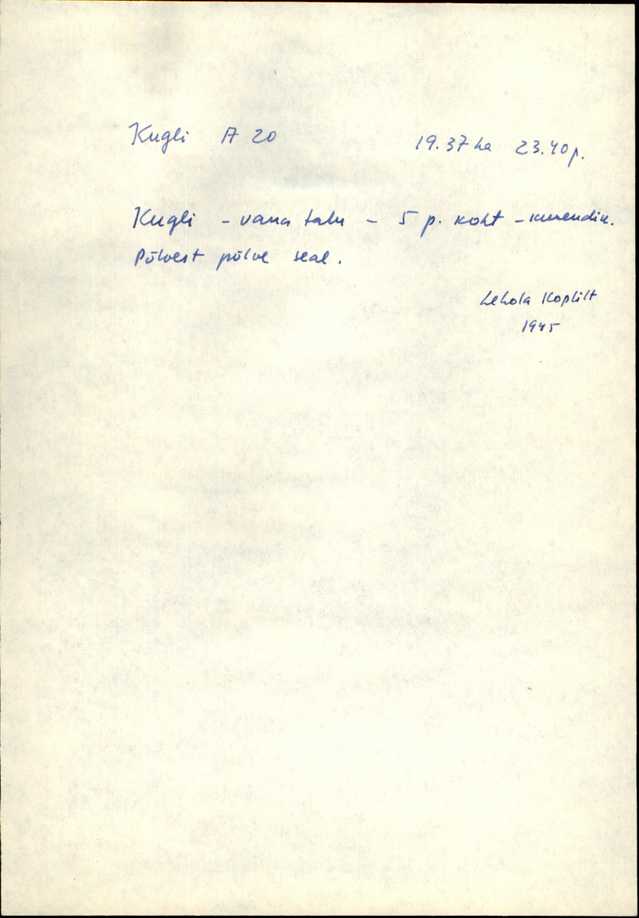 Kugli A 20 19.37 ha 23.40 p.
Kugli - vana talu - 5 p. koht -
Põlvest põlve seal.
Lehola Koplilt
1945